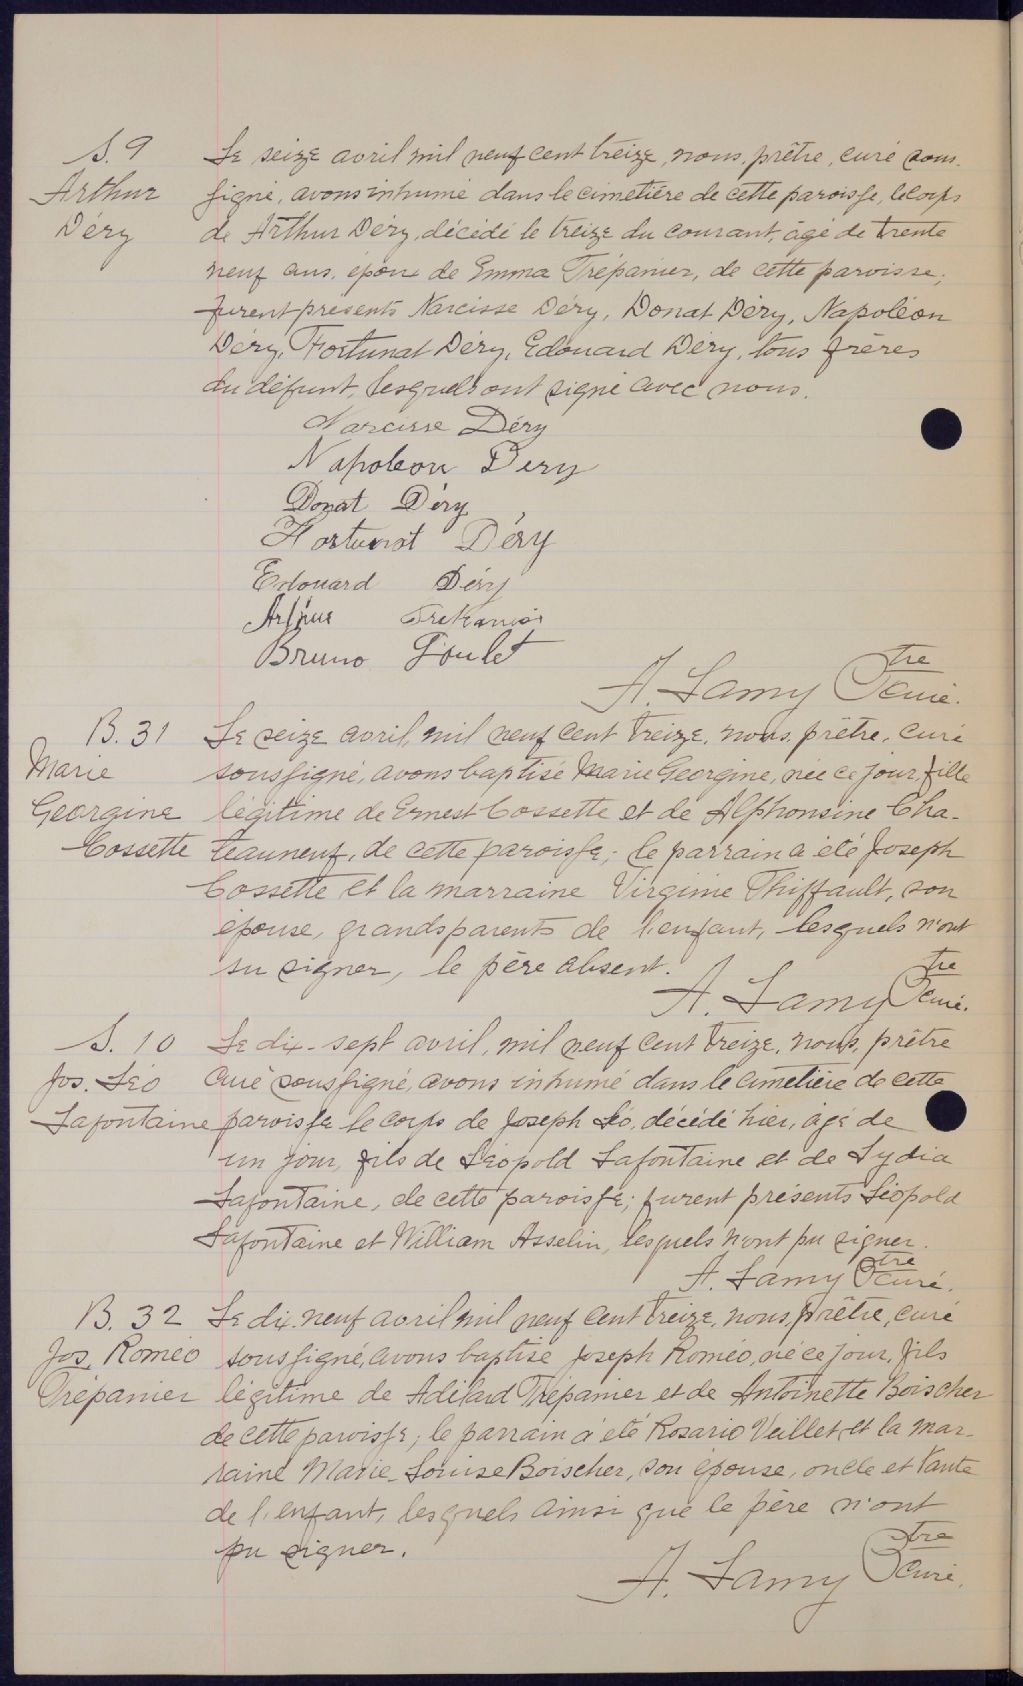 S. 9
Arthur
Déry
Le seize avril mil neuf cent treize, nous, prêtre, curé sous-
signé, avons inhumé dans le cimetière de cette paroisse, le corps
de Arthur Déry, décédé le treize du courant, âgé de trente
neuf ans, époux de Emma Trépanier, de cette paroisse;
furent présents Narcisse Déry, Donat Déry, Napoléon
Déry, Fortunat Déry, Edouard Déry, tous frères
du défunt, lesquels ont signé avec nous.
Narcisse Déry
Napoleon Dery
Donat Déry
Fortunat Déry
Edouard Déry
Arthur
Bruno Goulet
A. Lamy Ptre curé.
B. 31
Marie
Georgine
Cossette
Le seize avril, mil neuf cent treize, nous, prêtre, curé
soussigné, avons baptisé Marie Georgine, née ce jour, fille
légitime de Ernest Cossette et de Alphonsine Cha-
teauneuf, de cette paroisse; le parrain a été Joseph
Cossette et la marraine Virginie Thiffault, son
épouse, grands parents de l'enfant, lesquels n'ont
su signer, le père absent.
A. Lamy Ptre curé.
S. 10
Jos. Léo
Lafontaine
Le dix-sept avril, mil neuf cent treize, nous, prêtre
curé soussigné, avons inhumé dans le cimetière de cette
paroisse le corps de Joseph Léo, décédé hier, âgé de
un jour, fils de Léopold Lafontaine et de Lydia
Lafontaine, de cette paroisse; furent présents Léopold
Lafontaine et William Asselin, lesquels n'ont pu signer.
A. Lamy Ptre curé.
B. 32
Jos. Roméo
Trépanier
Le dix-neuf avril mil neuf cent treize, nous, prêtre, curé
soussigné, avons baptisé Joseph Roméo, né ce jour, fils
légitime de Adélard Trépanier et de Antoinette Boischer
de cette paroisse; le parrain a été Rosario Veillet et la mar-
raine Marie-Louise Boischer, son épouse, oncle et tante
de l'enfant, lesquels ainsi que le père n'ont
pu signer.
A. Lamy Ptre curé.